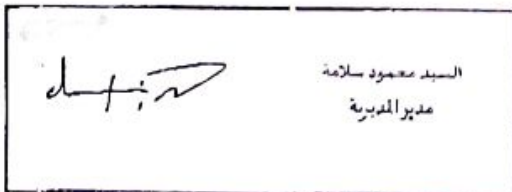 السيد محمود سلامة
مدير المديرية